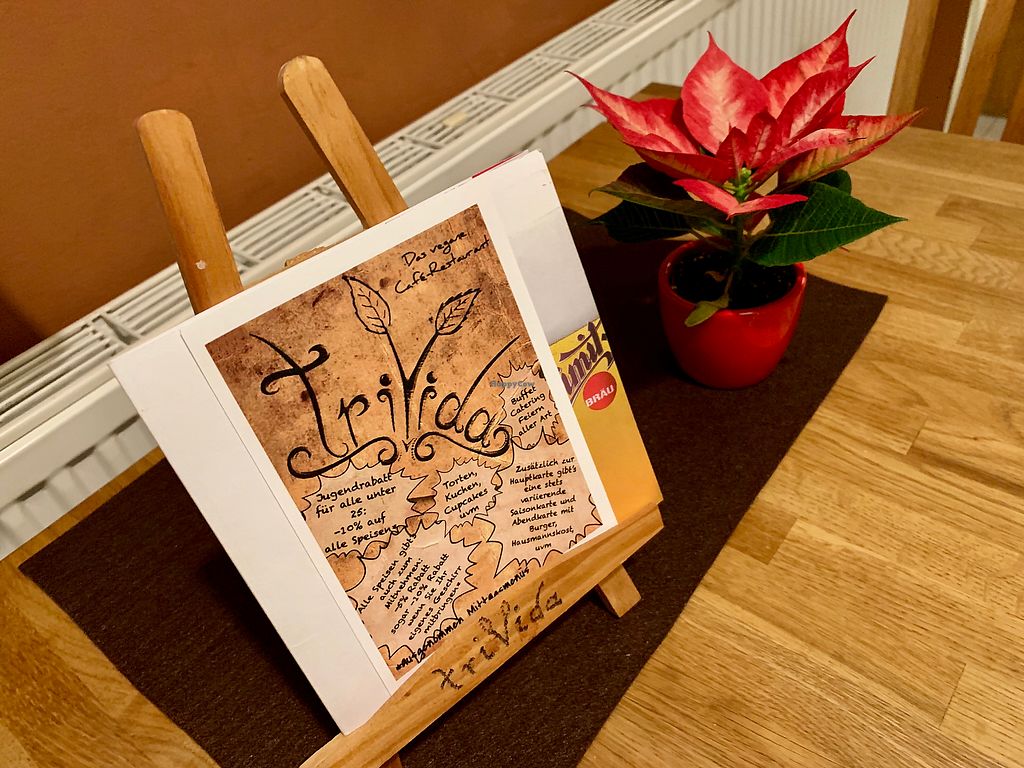 Das vegane
Café-Restaurant
TriVida
Buffet
Catering
Feiern
aller Art
Jugendrabatt
für alle unter
25:
-10% auf
alle Speisen*
Torten,
Kuchen,
Cupcakes
uvm
Zusätzlich zur
Hauptkarte gibt's
eine stets
variierende
Saisonkarte und
Abendkarte mit
Burger,
Hausmannskost,
uvm
alle Speisen gibt's
auch zum
Mitnehmen:
-5% Rabatt
sogar -10% Rabatt
wenn Sie Ihr
eigenes Geschirr
mitbringen*
*ausgenommen Mittagsmenüs
triVida
BRÄU
HappyCow